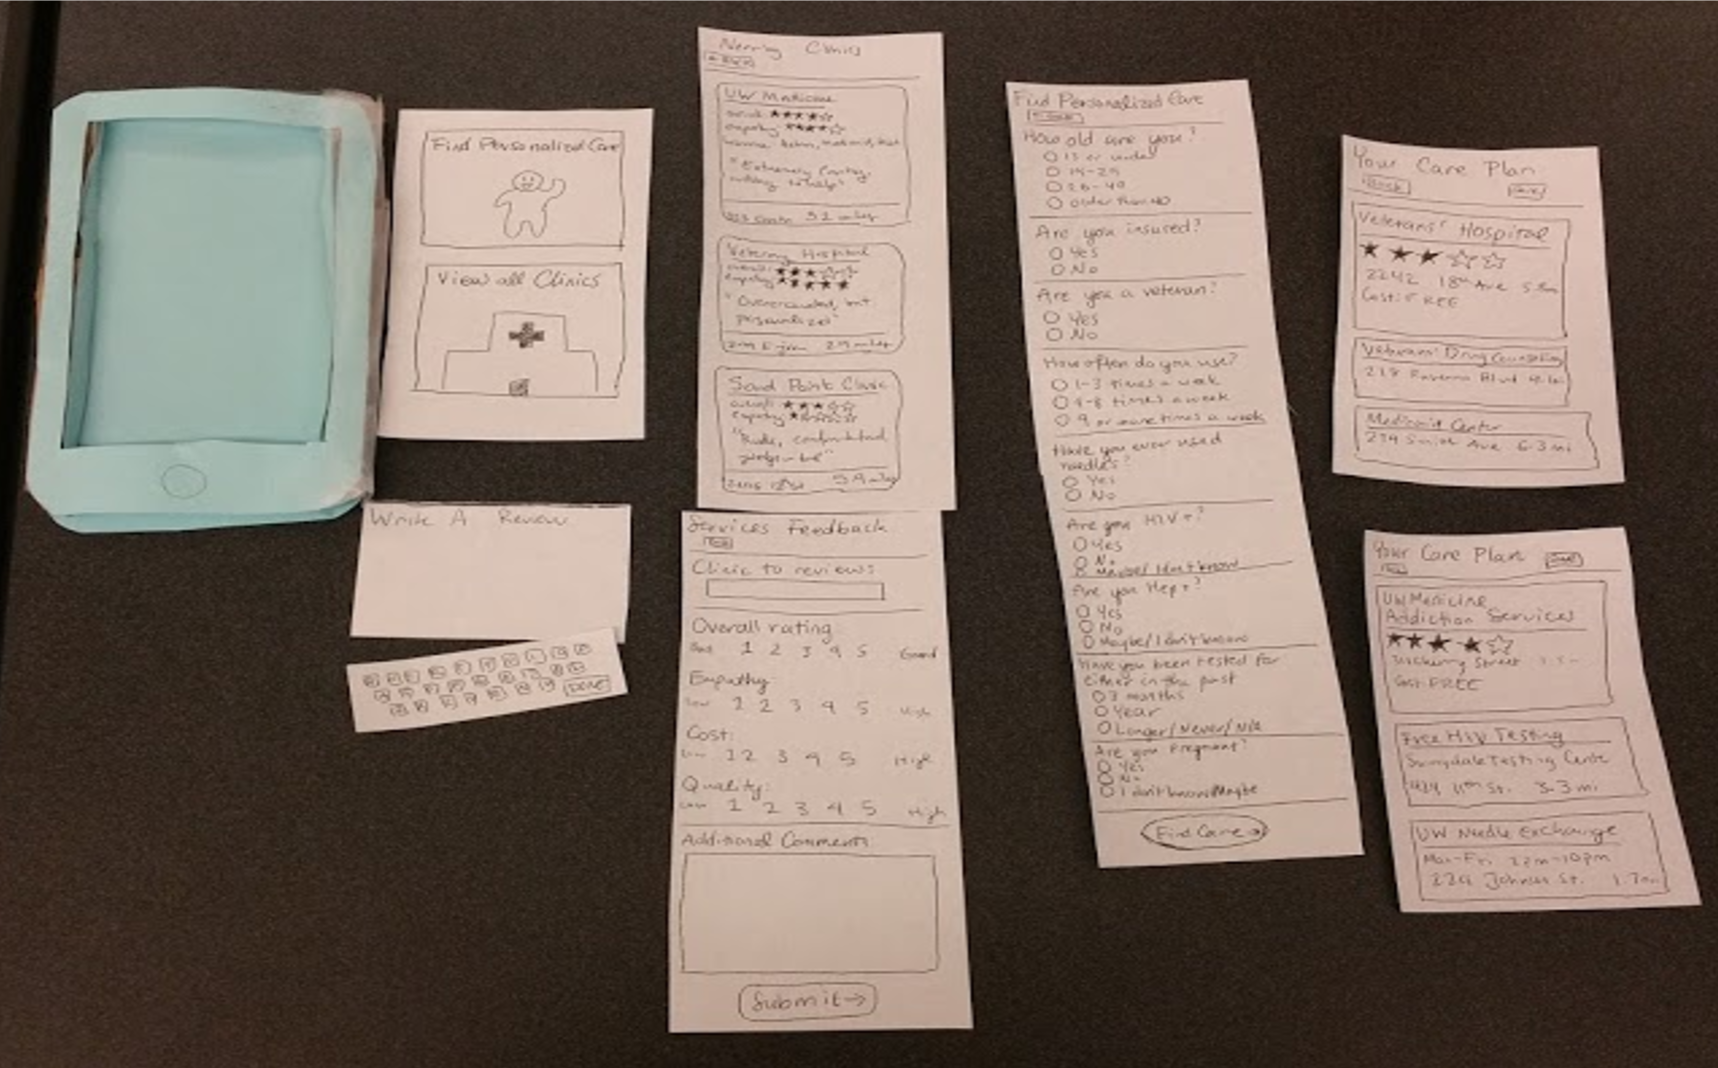 Find Personalized Care
View all Clinics
Write A Review
DONE
Nearby Clinics
UW Medicine
overall:
empathy
"Extremely
willing to help"
Hospital
overall:
Empathy
"Overcrowded, but
personalized"
Sand Point Clinic
overall:
Empathy
"Rude,
Services Feedback
Back
Clinic to review:
Overall rating
Bad 1 2 3 4 5 Good
Empathy
Low 1 2 3 4 5 High
Cost:
Low 1 2 3 4 5 High
Quality:
Low 1 2 3 4 5 High
Additional Comments:
Submit →
Find Personalized Care
How old are you?
or under
26-40
older than 40
Are you insured?
Yes
No
Are you a veteran?
Yes
No
How often do you use?
1-3 times a week
4-8 times a week
9 or more times a week
Have you ever used
needles?
Yes
No
Are you HIV+?
Yes
No
Maybe/I don't know
Are you Hep+?
Yes
No
Maybe/I don't know
Have you been tested for
either in the past
3 months
Year
Longer/Never/N/A
Are you Pregnant?
Yes
No
I don't know/Maybe
Find Care →
Your Care Plan
Back
Veterans' Hospital
2242 18th Ave
Cost: FREE
Veterans' Drug Counseling
Ravenna Blvd
Medicaid Center
234 Smith Ave 6.3 mi
Your Care Plan
UW Medicine
Addiction Services
Street
Cost: FREE
Free HIV Testing
Sunnydale Testing Center
11th St. 3.3 mi
UW Needle Exchange
Mon-Fri 2pm-10pm
St.